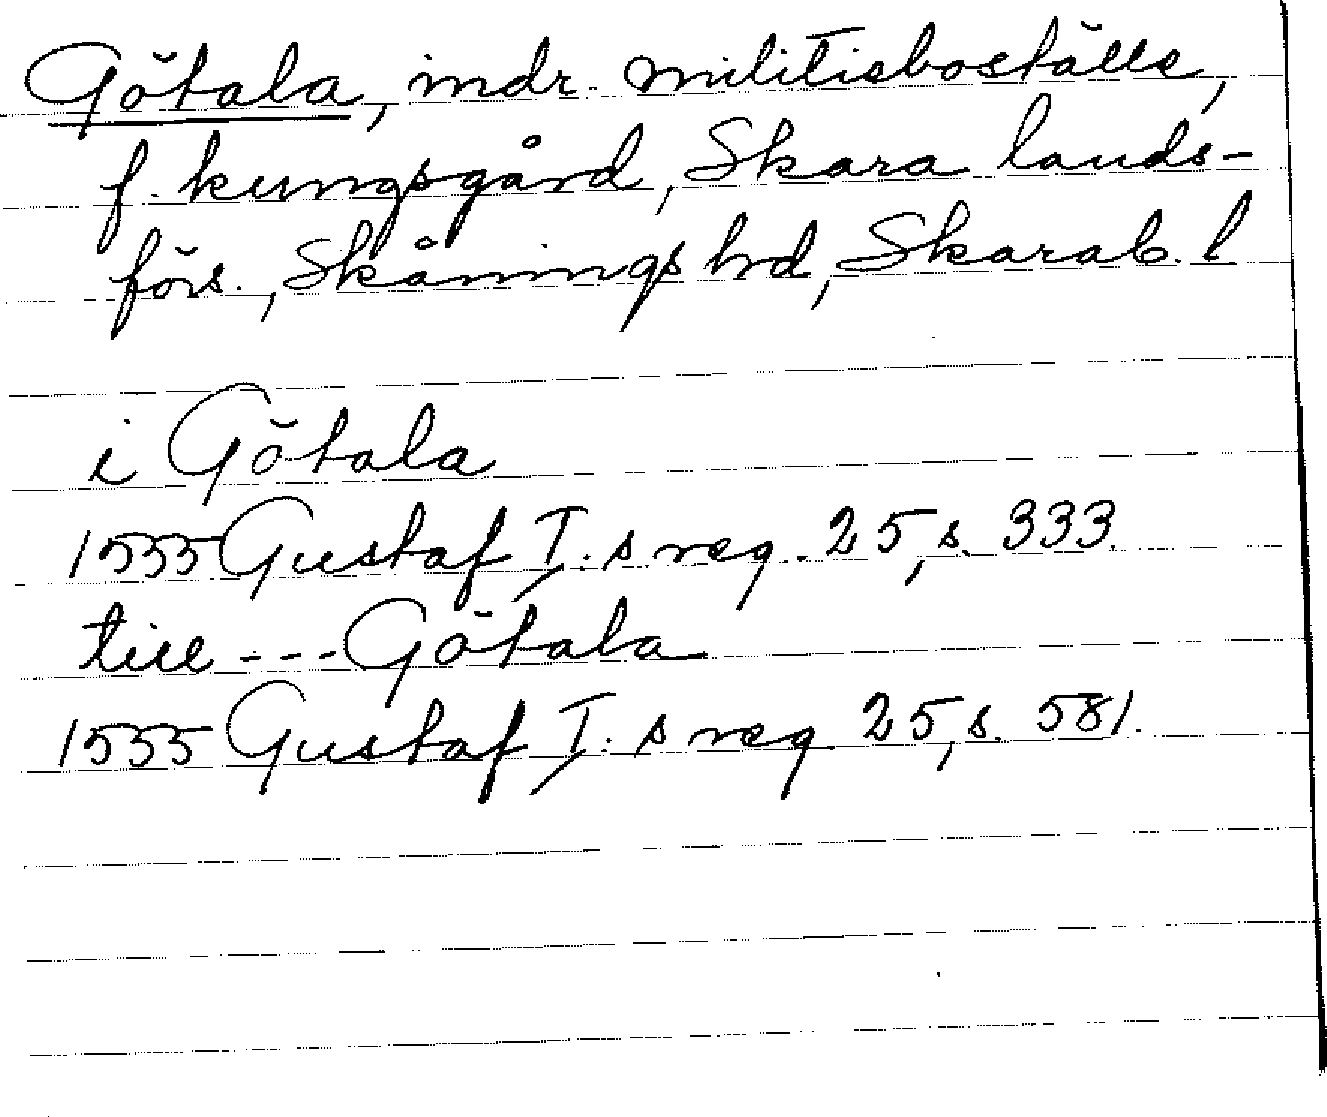 Götala, indr. militieboställe,
f. kungsgård, Skara lands-
förs., Skånings hd, Skarab. l
i Götala
1555 Gustaf I:s reg. 25, s. 333.
till --- Götala
1555 Gustaf I:s reg 25, s. 581.